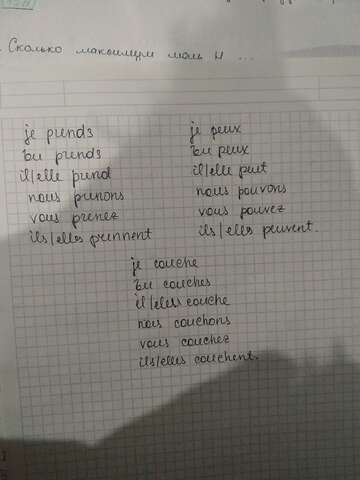 Сколько максимум моль Н ...
je prends
tu prends
il/elle prend
nous prenons
vous prenez
ils/elles prennent
je peux
tu peux
il/elle peut
nous pouvons
vous pouvez
ils/elles peuvent.
je couche
tu couches
il/elles couche
nous couchons
vous couchez
ils/elles couchent.